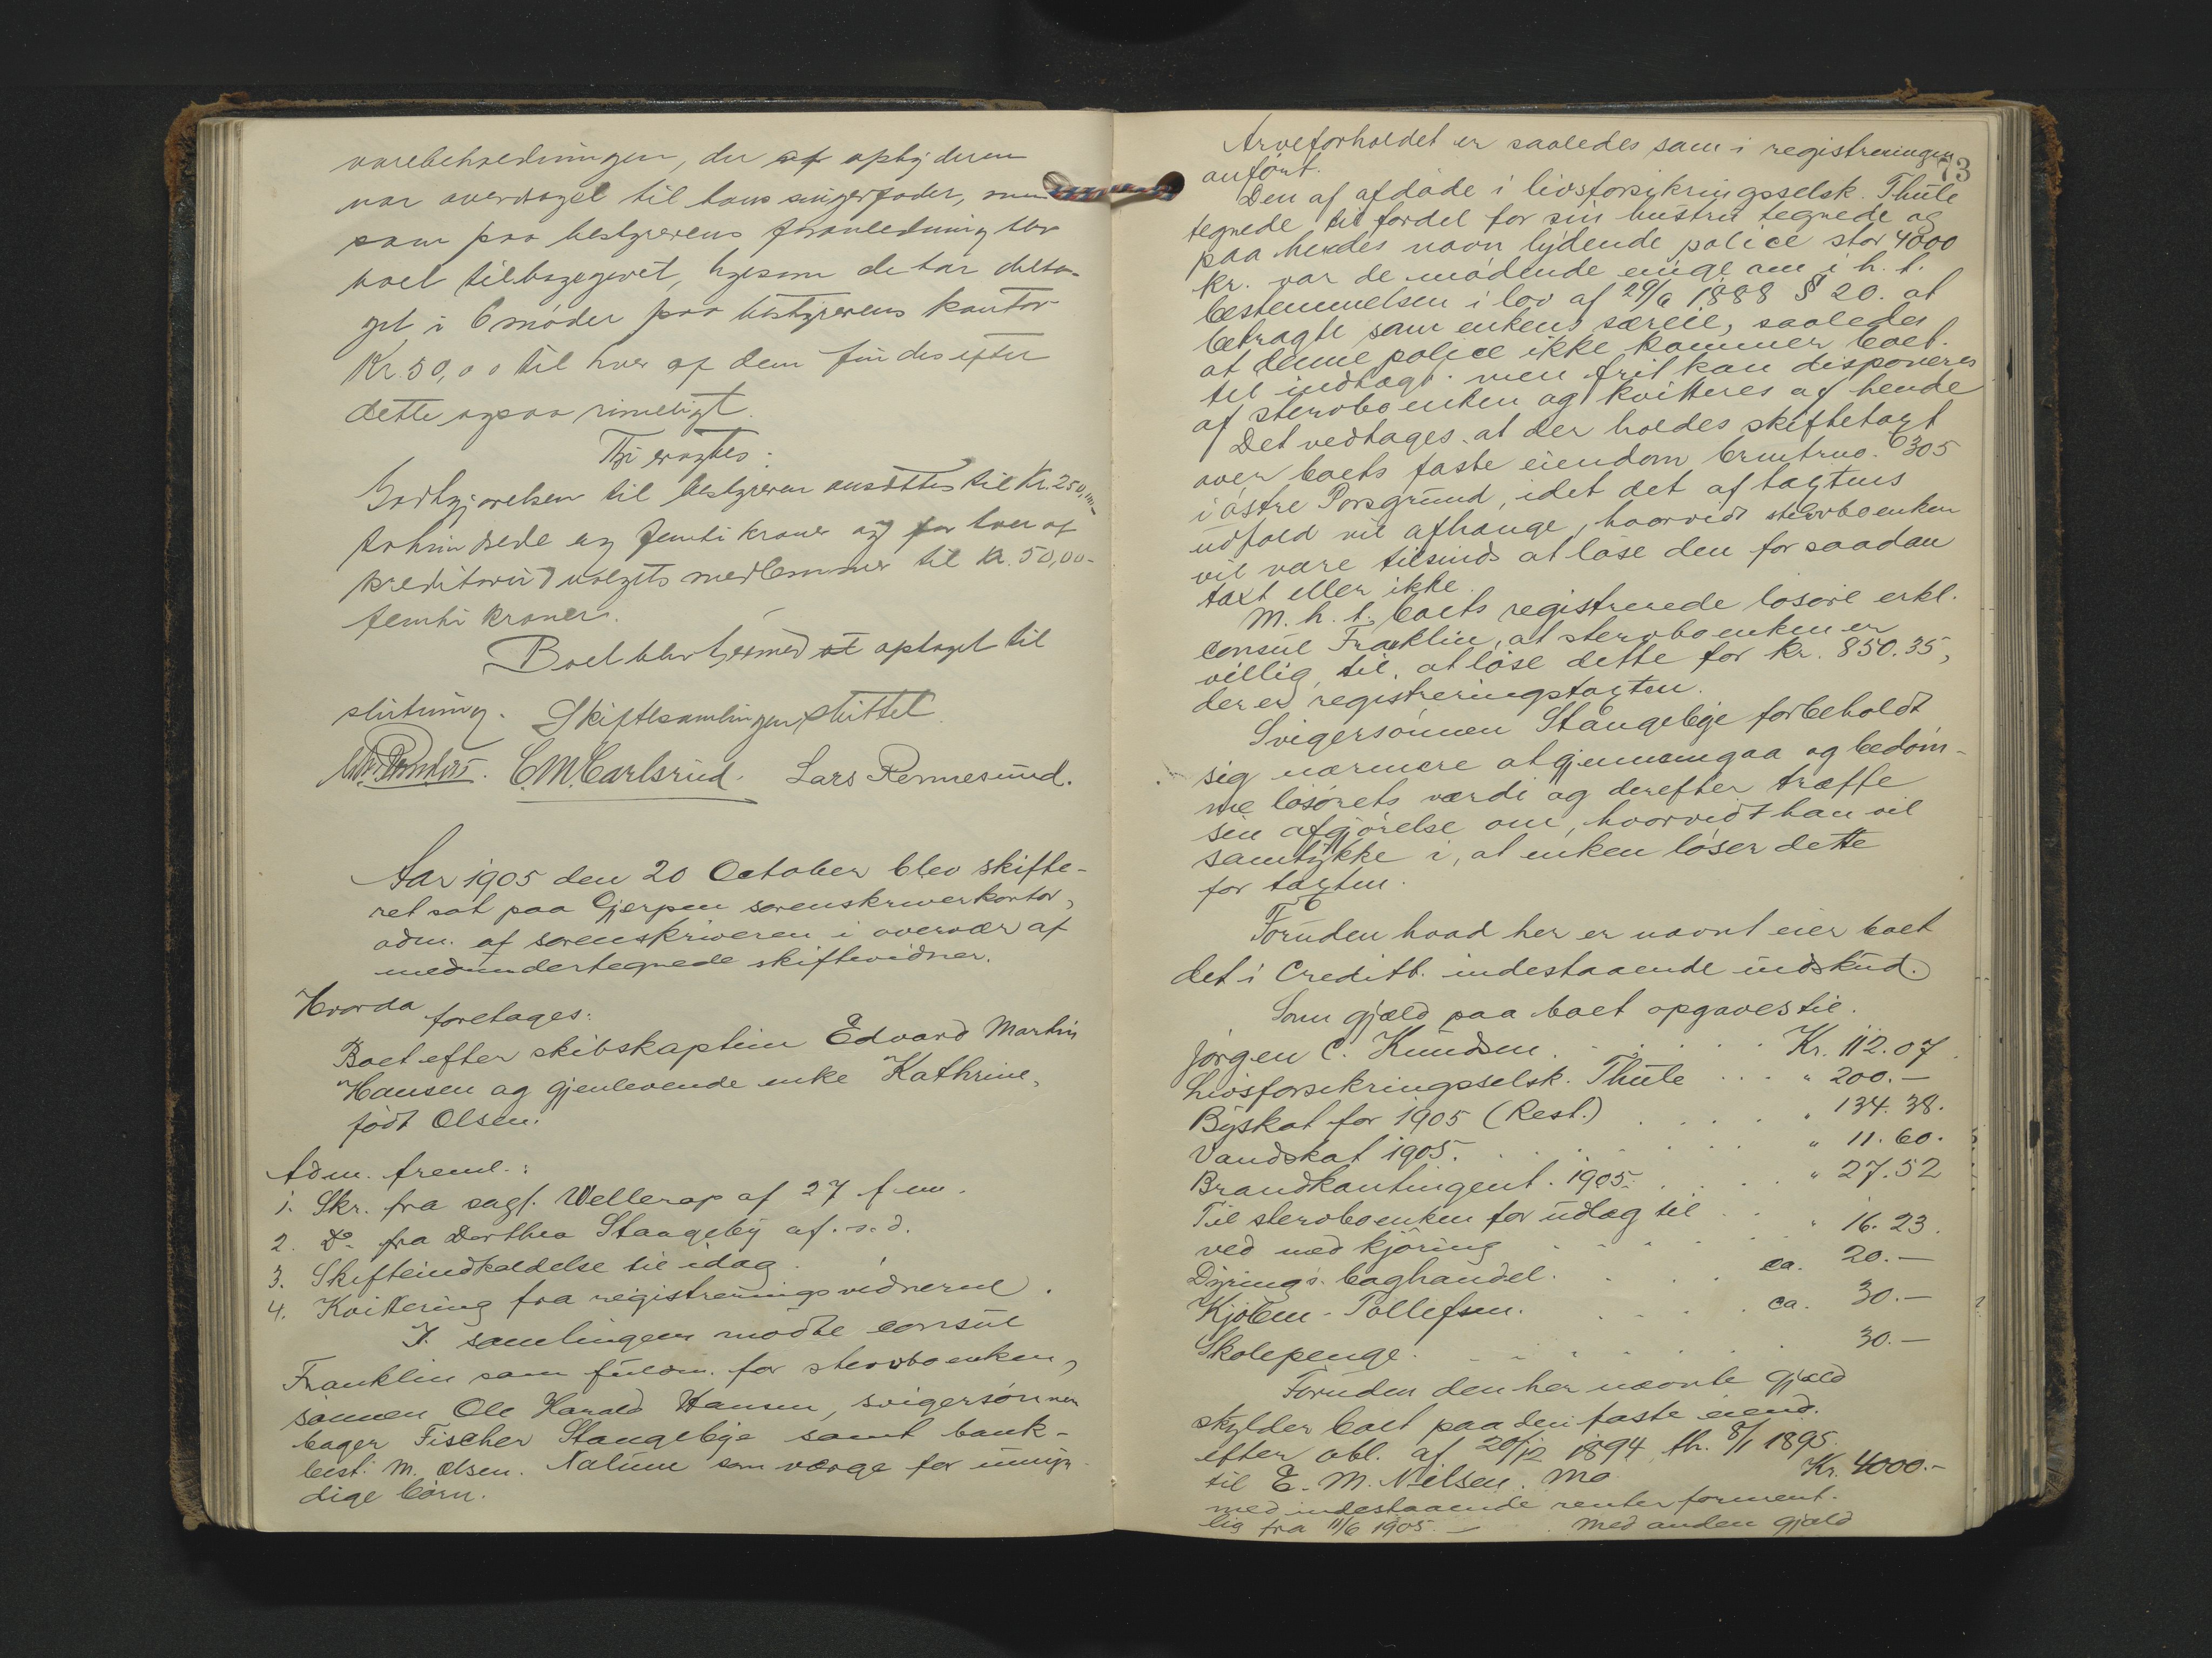 varebeholdningen, der af opbyderen
var overdraget til hans svigerfader, men
som paa bestyrerens foranledning blev
boet tilbagegivet, ligesom de har delta-
get i 6 møder paa bestyrerens kontor
Kr. 50,00 til hver af dem findes efter
dette ogsaa rimeligt.
Thi eragtes:
Godtgjørelsen til bestyreren ansættes til Kr. 250,00-
tohundrede og femti kroner og for hver af
kreditorudvalgets medlemmer til kr. 50,00-
femti kroner.
Boet blev hermed at optaget til
slutning. Skiftesamlingen sluttet.
C.M. Carlsrud. Lars Rennesund.
Aar 1905 den 20 October blev skifte-
ret sat paa Gjerpen sorenskriverkontor,
adm. af sorenskriveren i overvær af
medundertegnede skiftevidner.
Hvorda foretages:
Boet efter skibskaptein Edvard Martin
Hansen og gjenlevende enke Kathrine,
født Olsen.
Adm. freml.:
1. Skr. fra sagf. Wellerop af 27 f.m.
2. Do. fra Dorthea Staageby af s.d.
3. Skifteindkaldelse til idag.
4. Kvittering fra registreringsvidnerne.
I samlingen mødte consul
Franklin som fuldm. for stervboenken,
sønnen Ole Harald Hansen, svigersønnen
bager Fischer Stangebye samt bank-
best. M. Olsen. Nalum som værge for umyn-
dige børn.
73
Arveforholdet er saaledes som i registreringen
anført.
Den af afdøde i livsforsikringsselsk. Thule
tegnede til fordel for sin hustru tegnede og
paa hendes navn lydende police stor 4000
kr. var de mødende enige om i h. t.
bestemmelsen i lov af 29/6 1888 § 20. at
betragte som enkens særeie, saaledes
at denne police ikke kommer boet
til indtægt. men frit kan disponeres
af stervboenken og kvitteres af hende
Det vedtages at der holdes skiftetaxt
over boets faste eiendom brmtrno. 305
i østre Porsgrund, idet det af taxtens
udfald vil afhænge, hvorvidt stervboenken
vil være tilsinds at løse den for saadan
taxt eller ikke.
M. h. t. boets registrerede løsøre erkl.
consul Franklin, at stervboenken er
villig til, at løse dette for kr. 850.35,
der er registreringstaxten.
Svigersønnen Stangebye forbeholdt
sig nærmere at gjennemgaa og bedøm-
me løsørets værdi og derefter træffe
sin afgjørelse om, hvorvidt han vil
samtykke i, at enken løser dette
for taxten.
Foruden hvad her er nævnt eier boet
det i Creditb. indestaaende indskud.
Som gjæld paa boet opgaves til.
Jørgen C. Knudsen . . . . . Kr. 112.07.
Livsforsikringsselsk. Thule . . . " 200.—
Byskat for 1905 (Rest.) . . . . " 134.38.
Vandskat 1905. . . . . . . " 11.60.
Brandkontingent. 1905. . . . . " 27.52
Til stervboenken for udlæg til . .
ved med kjøring . . . . . . " 16.23.
Dyrings boghandel. . . . ca. 20.—
Kjøbm. Tollefsen. . . . . ca. 30.—
Skolepenge. . . . . . . . 30.—
Foruden den her nævnte gjæld
skylder boet paa den faste eiend.
efter obl. af 20/12 1894, th. 8/1 1895.
til E. M. Nilsen. Mo Kr. 4000.—
med indestaaende renter forment-
lig fra 11/6 1905. — . Med anden gjæld